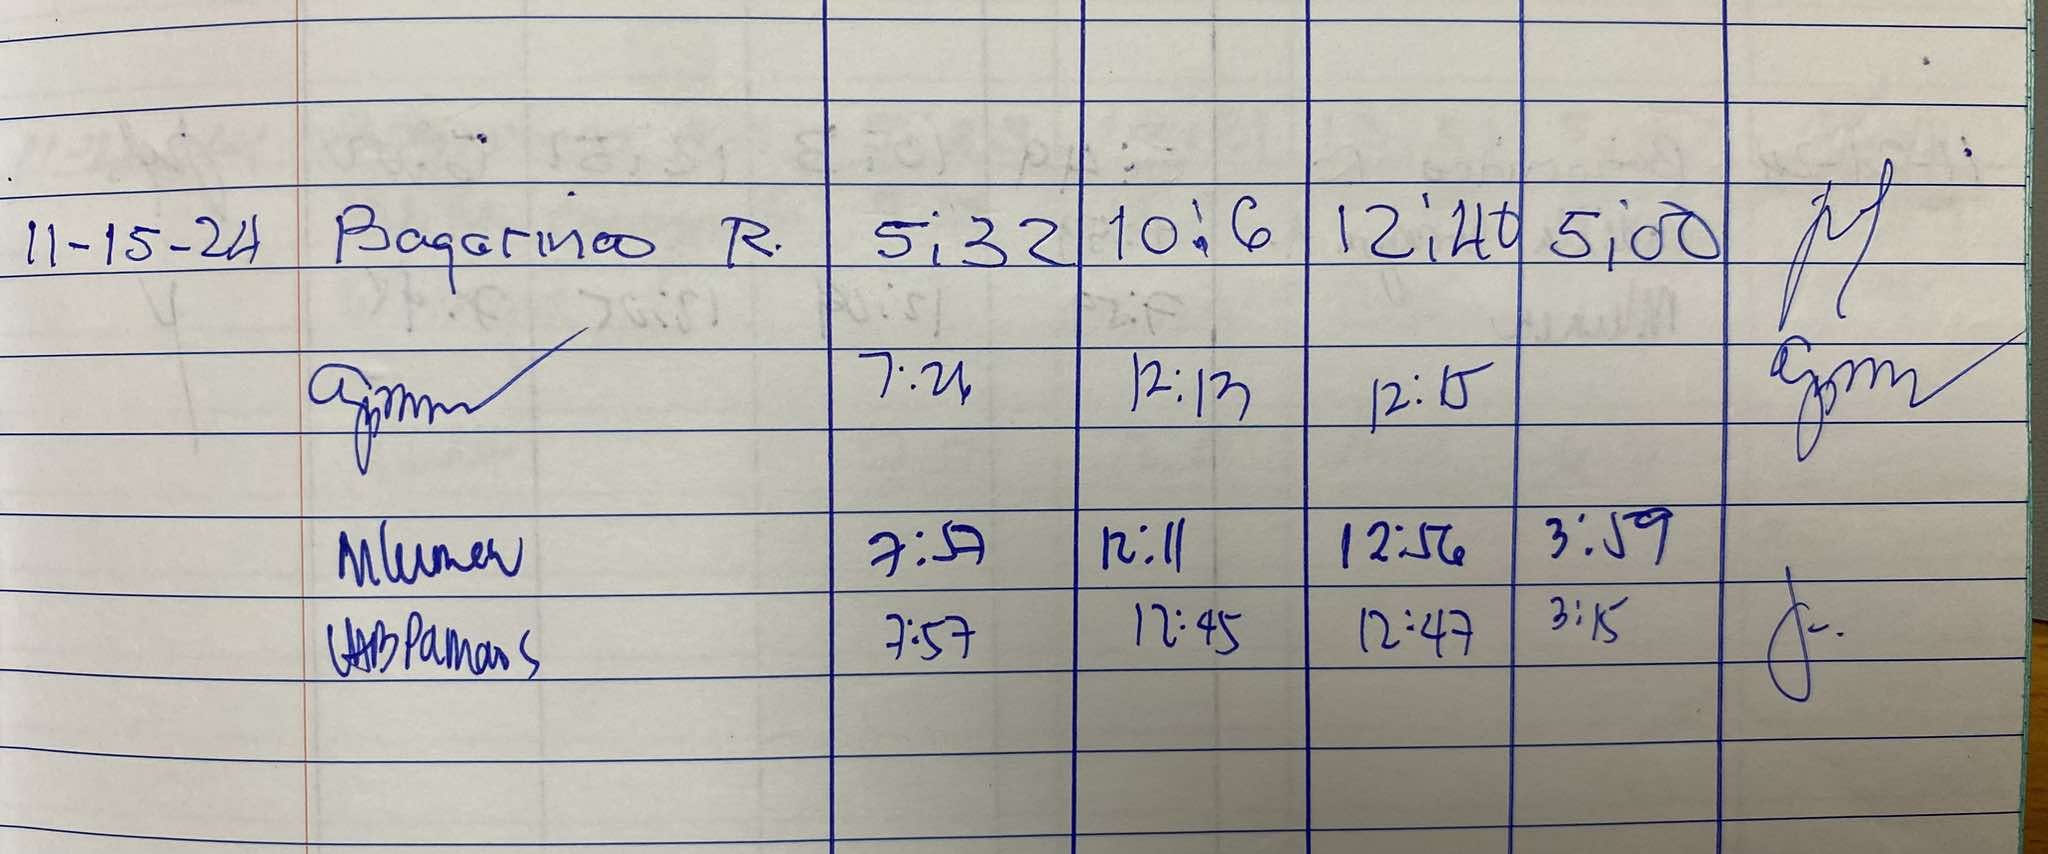 11-15-24 Bagarinao R. 5:32 10:6 12:40 5:00
7:26 12:13 12:15
7:57 12:11 12:56 3:59
7:57 12:45 12:47 3:15